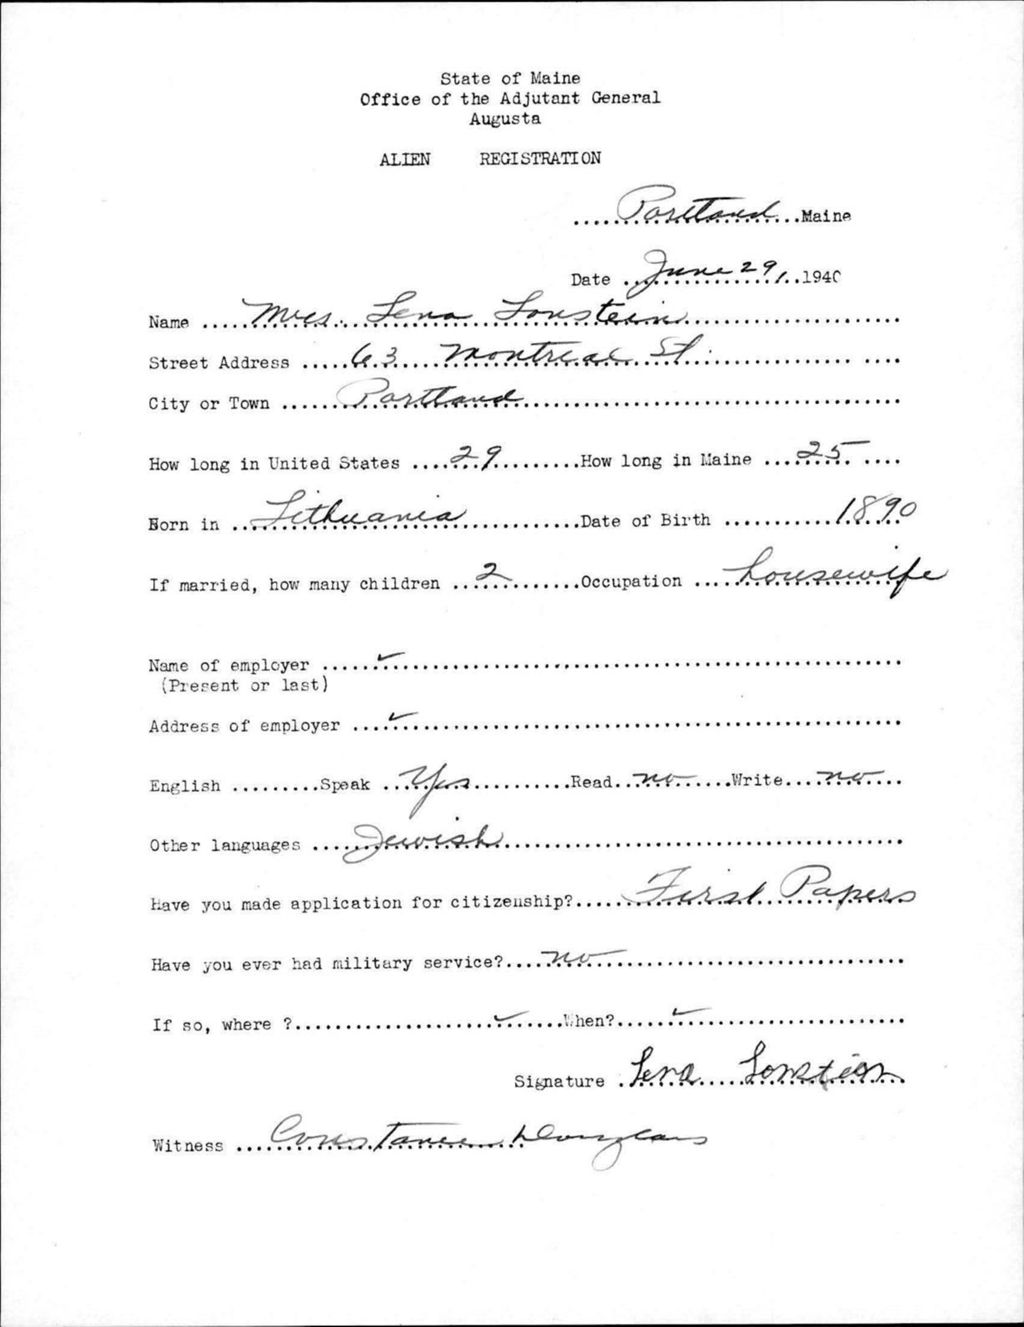 State of Maine
Office of the Adjutant General
Augusta
ALIEN REGISTRATION
.....Portland...Maine
Date ..June 29,..1940
Name .....Mrs. Lena Lonstein......................
Street Address .....63 Montreal St.................. ....
City or Town .......Portland...................................
How long in United States ....29.........How long in Maine ...25.......
Born in ..Lithuania............Date of Birth ...........1890
If married, how many children ...2.........Occupation ....housewife
Name of employer .....✓................................................
(Present or last)
Address of employer ...✓................................................
English .........Speak ..Yes..........Read..no......Write...no....
Other languages ....Jewish........................................
Have you made application for citizenship?.....First Papers
Have you ever had military service?....no..............................
If so, where ?...................✓......When?.....✓....................
Signature .Lena Lonstein
Witness ...Constance Douglass